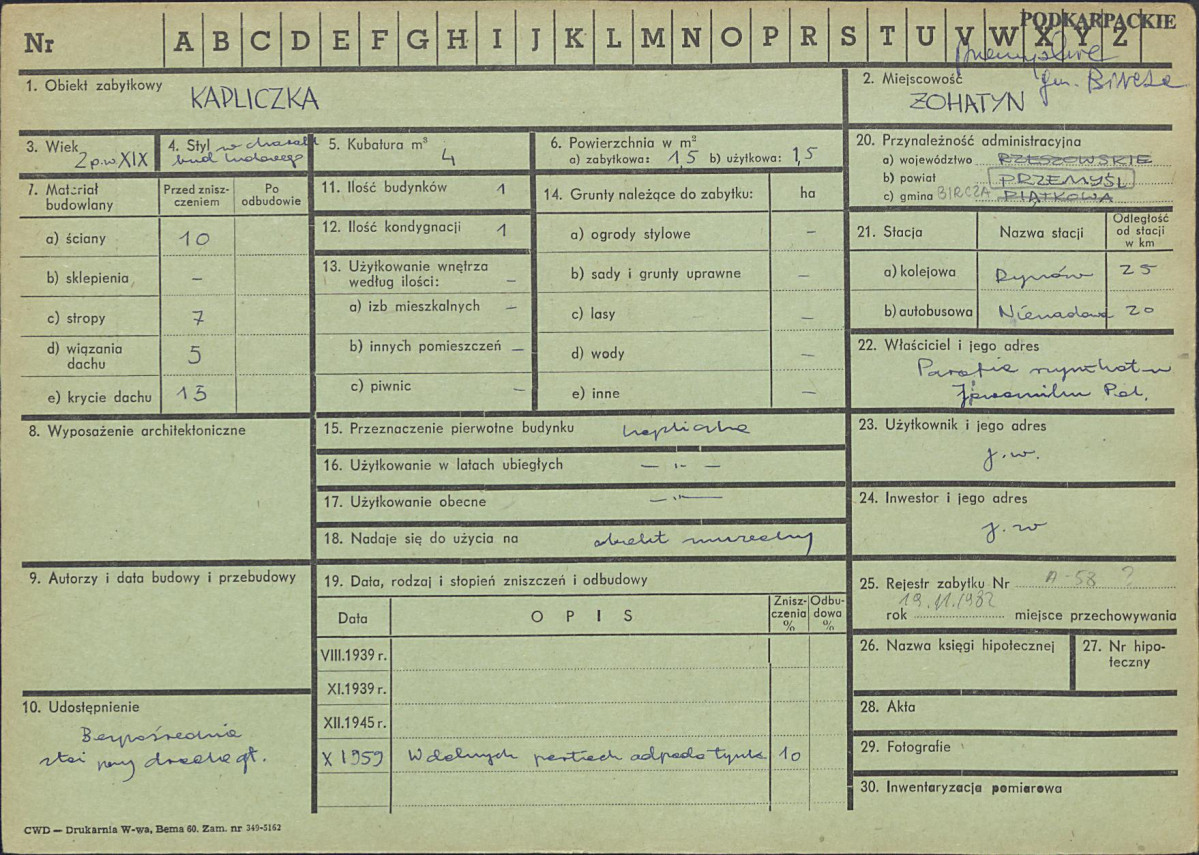 PODKARPACKIE
Nr A B C D E F G H I J K L M N O P R S T U V W X Y Z
przemyskie
1. Obiekt zabytkowy
KAPLICZKA
2. Miejscowość
ZOHATYN
gm. Bircza
3. Wiek
2 p.w. XIX
4. Styl w charakt
bud. ludowego
5. Kubatura m³
4
6. Powierzchnia w m²
a) zabytkowa: 1,5 b) użytkowa: 1,5
20. Przynależność administracyjna
a) województwo RZESZOWSKIE
b) powiat PRZEMYŚL
c) gmina BIRCZA PIĄTKOWA
7. Materiał
budowlany
Przed znisz-
czeniem
Po
odbudowie
a) ściany 10
b) sklepienia –
c) stropy 7
d) wiązania
dachu 5
e) krycie dachu 13
11. Ilość budynków 1
12. Ilość kondygnacji 1
13. Użytkowanie wnętrza
według ilości: –
a) izb mieszkalnych –
b) innych pomieszczeń –
c) piwnic –
14. Grunty należące do zabytku: ha
a) ogrody stylowe –
b) sady i grunty uprawne –
c) lasy –
d) wody –
e) inne –
21. Stacja
Nazwa stacji
Odległość
od stacji
w km
a) kolejowa Dynów 25
b) autobusowa Nienadowa 20
22. Właściciel i jego adres
Parafia rzymkat w
Jawornilku Pol.
8. Wyposażenie architektoniczne
15. Przeznaczenie pierwotne budynku kapliczka
16. Użytkowanie w latach ubiegłych – „ –
17. Użytkowanie obecne – „ –
18. Nadaje się do użycia na obiekt muzealny
23. Użytkownik i jego adres
j.w.
24. Inwestor i jego adres
j.w
9. Autorzy i data budowy i przebudowy
19. Data, rodzaj i stopień zniszczeń i odbudowy
Data
OPIS
Znisz-
czenia
%
Odbu-
dowa
%
VIII.1939 r.
XI.1939 r.
XII.1945 r.
X 1959 W dolnych partiach odpada tynk. 10
25. Rejestr zabytku Nr A-58 ?
19.11.1982
rok miejsce przechowywania
26. Nazwa księgi hipotecznej
27. Nr hipo-
teczny
10. Udostępnienie
Bezpośrednie
stoi przy drodze gł.
28. Akta
29. Fotografie
30. Inwentaryzacja pomiarowa
CWD — Drukarnia W-wa, Bema 60. Zam. nr 349-5162